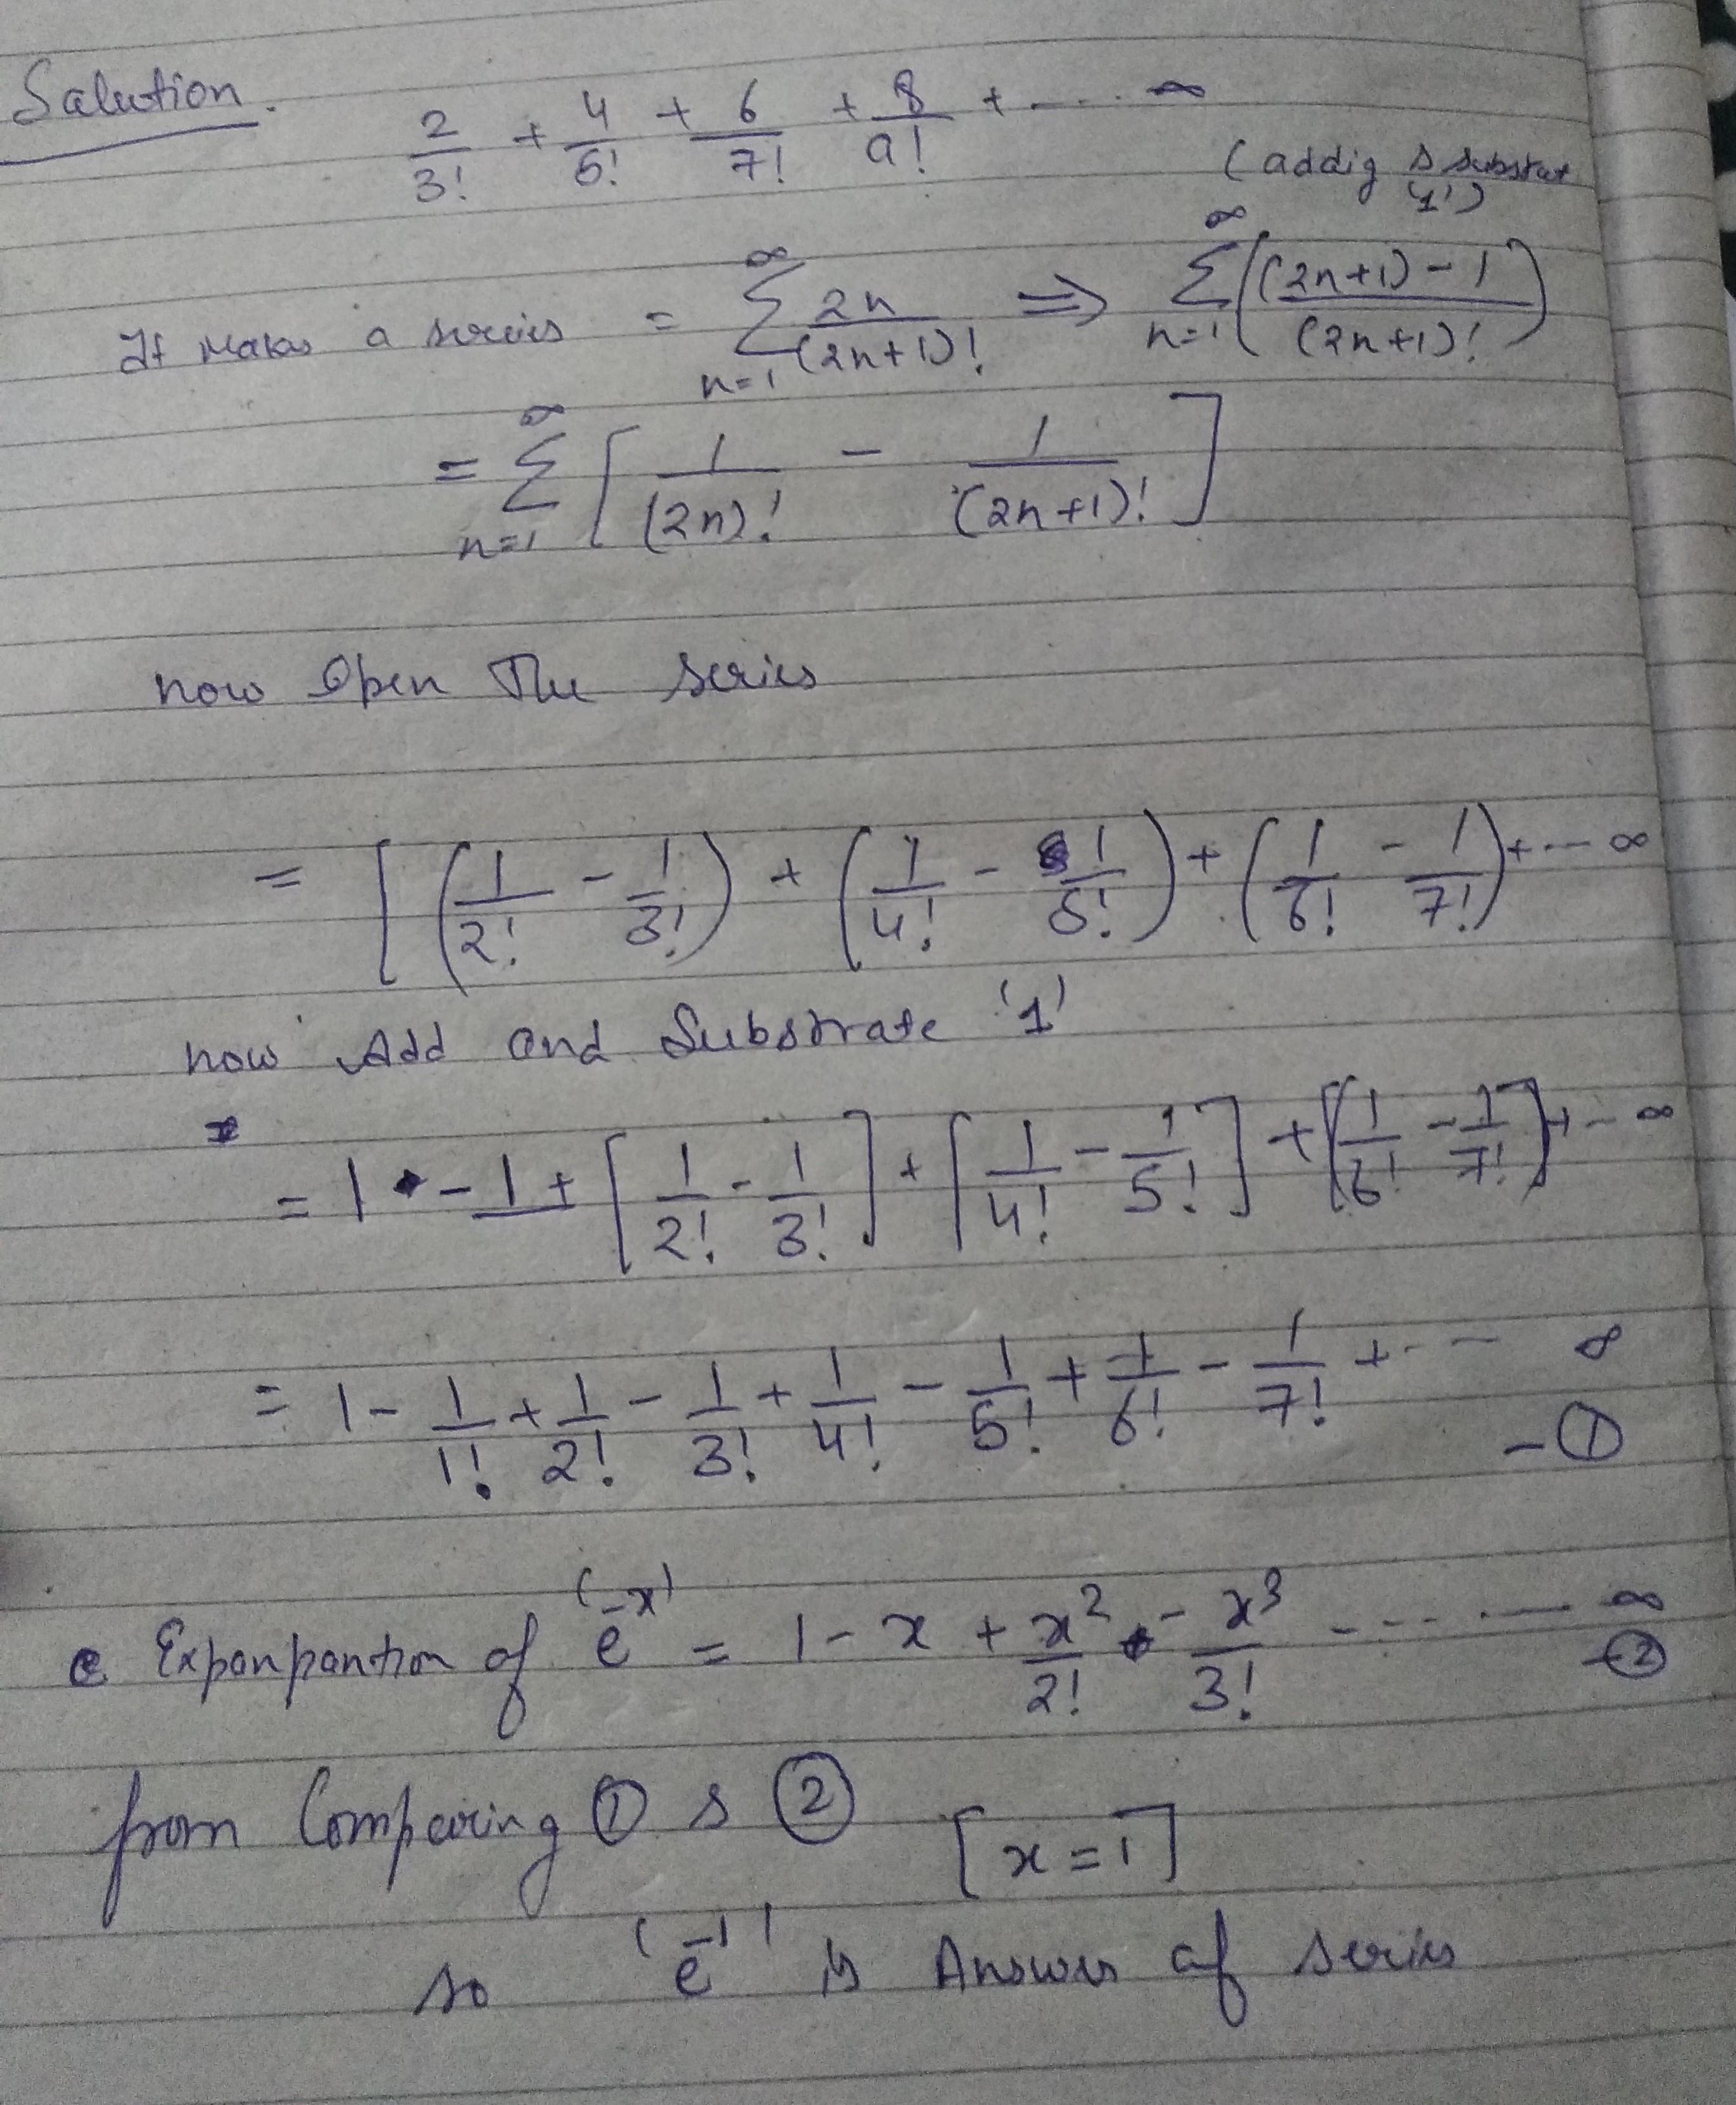 Salution.
2/3! + 4/5! + 6/7! + 8/9! + ---- ∞
(addig & substrat '1')
It makes a series = ∑_{n=1}^{∞} 2n/(2n+1)! ⇒ ∑_{n=1}^{∞} (((2n+1)-1)/(2n+1)!)
= ∑_{n=1}^{∞} [1/(2n)! - 1/(2n+1)!]
now Open The series
= [(1/2! - 1/3!) + (1/4! - 1/5!) + (1/6! - 1/7!) + --- ∞
now Add and Substrate '1'
= 1 - 1 + [1/2! - 1/3!] + [1/4! - 1/5!] + [1/6! - 1/7!] + -- ∞
= 1 - 1/1! + 1/2! - 1/3! + 1/4! - 1/5! + 1/6! - 1/7! + --- ∞
- ①
Exponpantion of (e^{-x}) = 1 - x + x²/2! - x³/3! ------ ∞
- ②
from Comparing ① & ② [x = 1]
so 'e^{-1}' is Answer of series